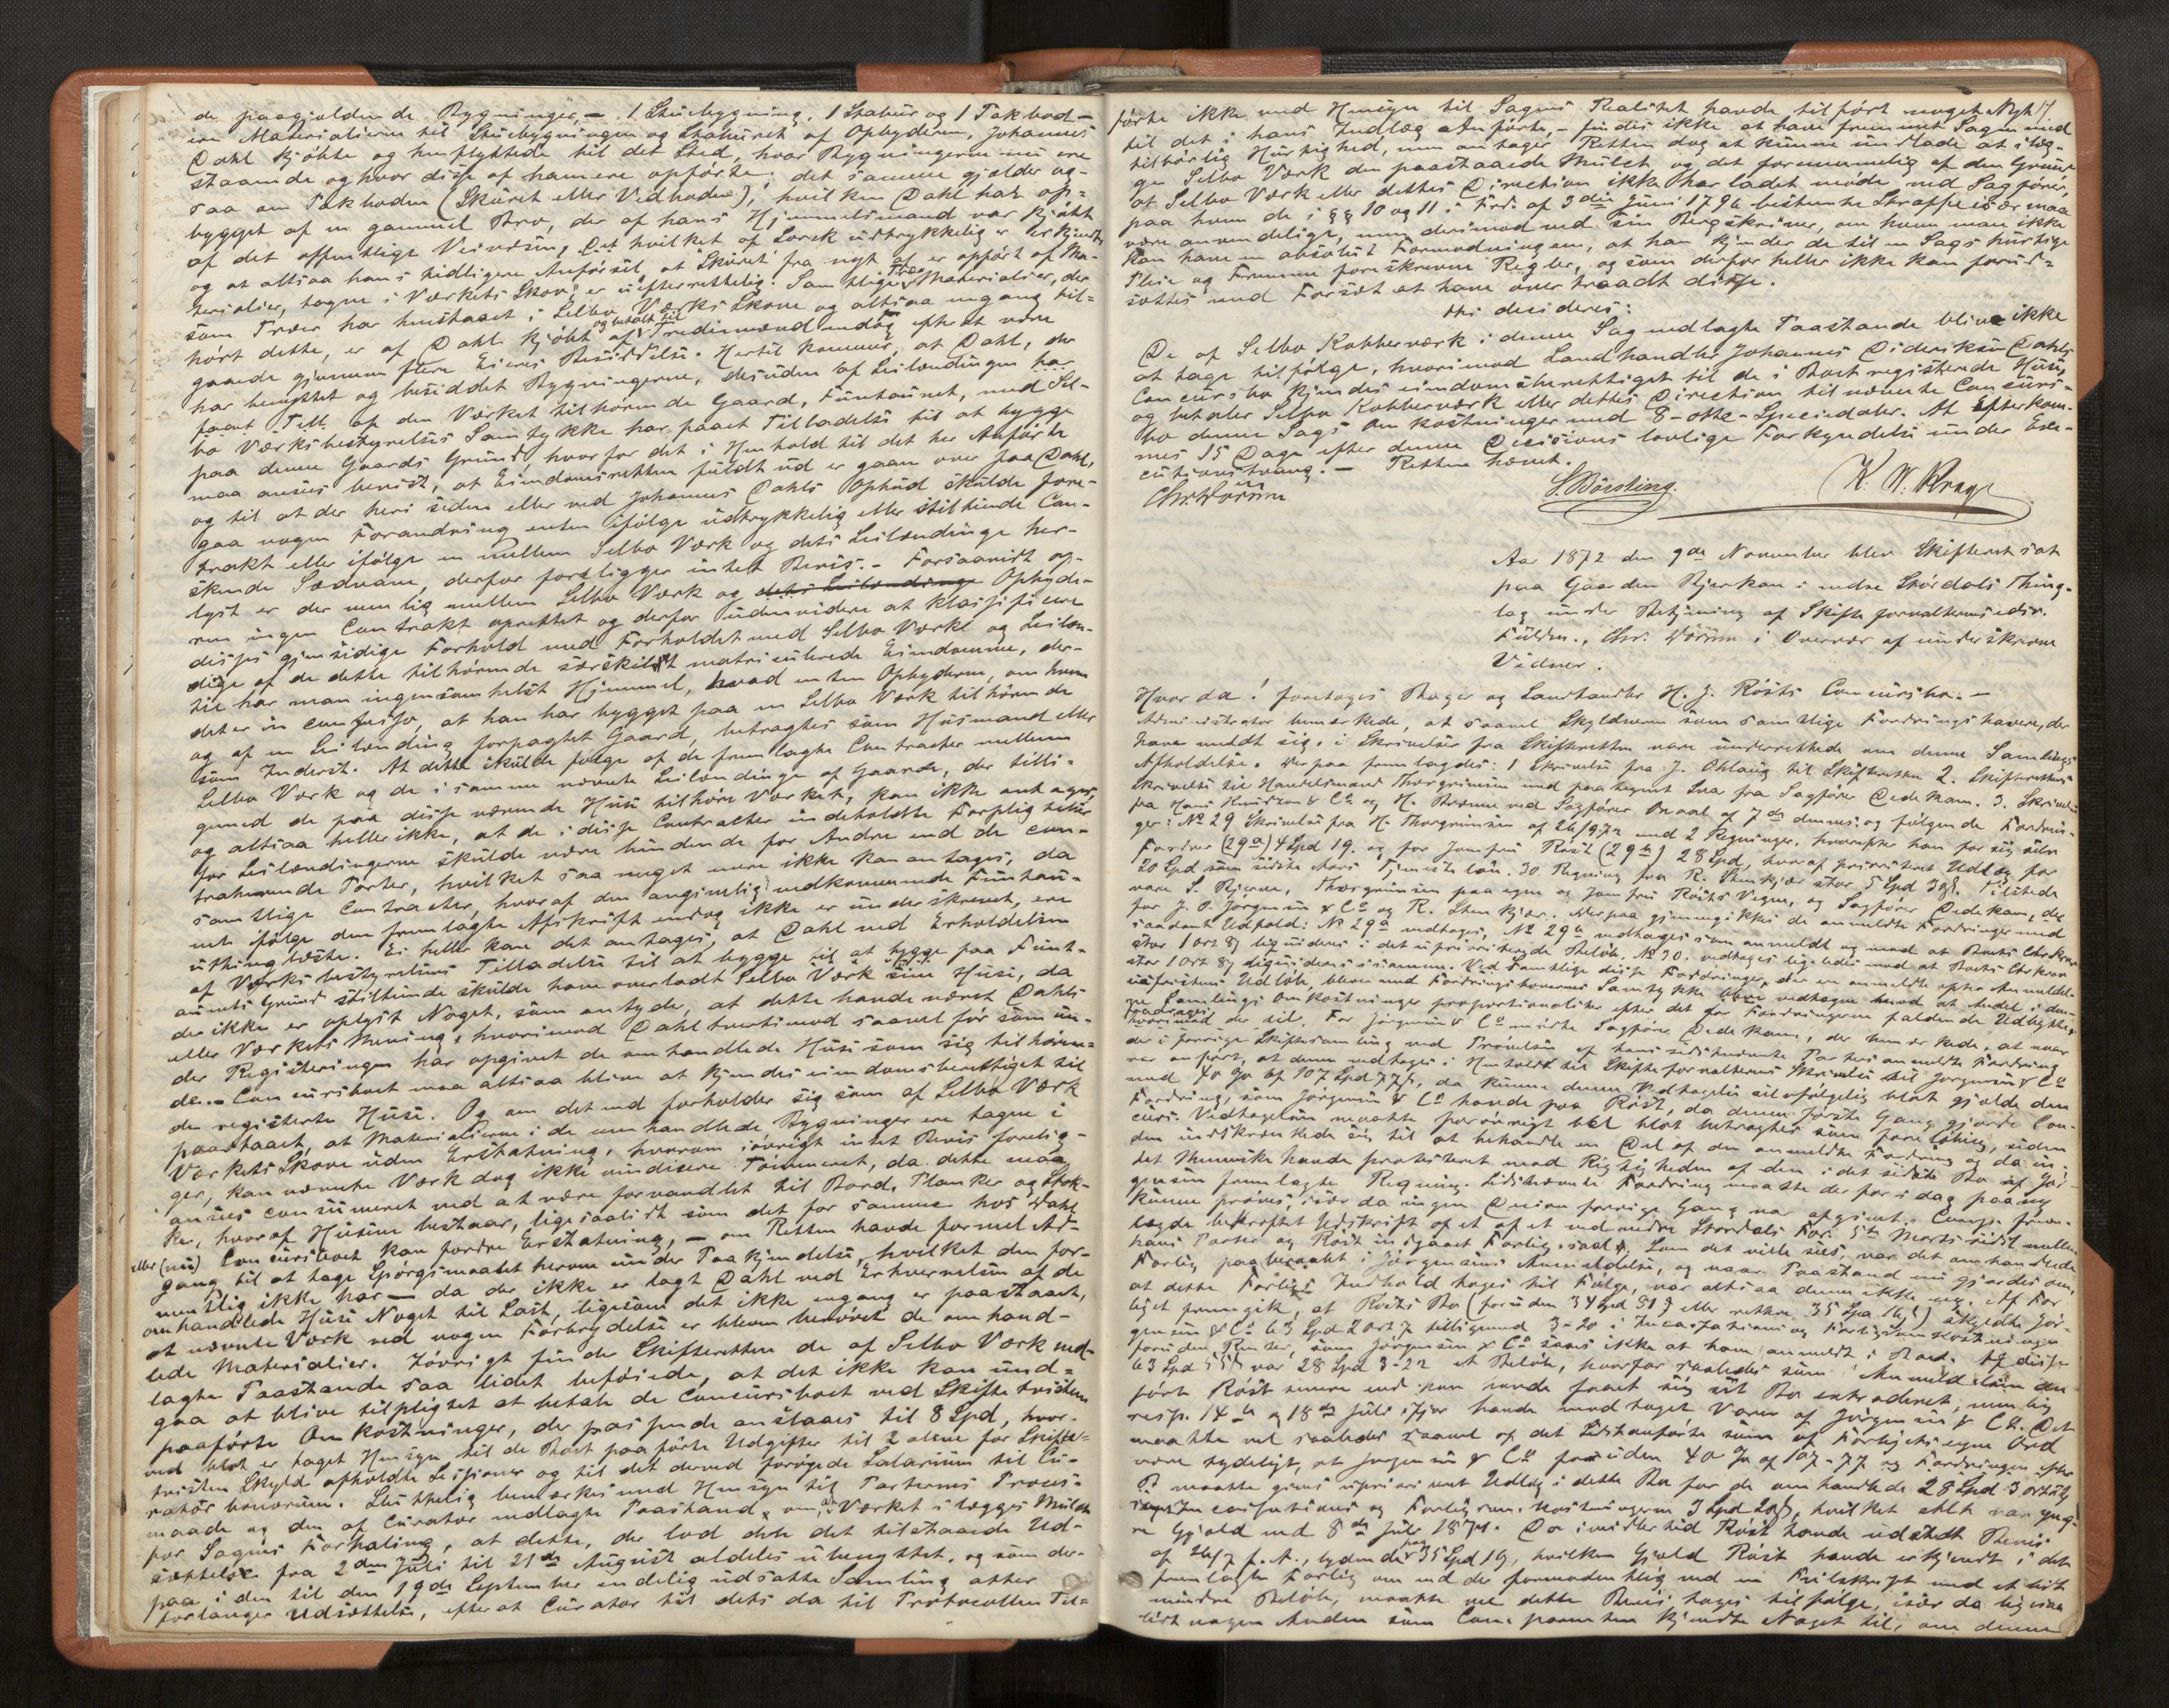 de paagjældende Bygninger, – 1 Stuebygning, 1 Stabur og 1 Takbod –
ere Materialierne til Stuebygningen og Staburet af Opbyderen, Johannes
Dahl kjøbte og henflyttede til det Sted, hvor Bygningerne nu ere
staaende og hvor disse af ham ere opførte; det samme gjælder og-
saa om Takboden (Skuret eller Vedboden), hvilken Dahl har op-
bygget af en gammel Bro, der af hans Hjemmelsmand var kjøbt
af det offentlige Veivæsen, Det hvilket af Lorck udtrykkelig er erkjendt
og at altsaa hans tidligere Anførsel, at Skuret fra nyt af er opført af Ma-
terialier, tagne i Værkets Skov, er uefterrettelig. Samtlige Træ Materialier, der
som Træer har henstaaet i Selbo Værks Skove og altsaa engang til-
hørt dette, er af Dahl kjøbt og betalt til Tredjemænd endog efter at være
gaaede gjennem flere Eieres Besiddelse. Hertil kommer, at Dahl, der
har benyttet og besiddet Bygningerne, desuden af Leilændingen har
faaet Till. af den Værket tilhørende Gaard, Funtaunet, med Sel-
bo Værksbestyrelses Samtykke har faaet Tilladelse til at bygge
paa denne Gaards Grund, hvorfor det i Henhold til det her Anførte
maa ansees bevist, at Eiendomsretten fuldt ud er gaaet over paa Dahl,
og til at der heri siden eller ved Johannes Dahls Opbud skulde fore-
gaa nogen Forandring enten ifølge udtrykkelig eller stiltiende Con-
trakt eller ifølge en mellem Selbo Værk og dets Leilændinge her-
skende Sædvane, derfor foreligger intet Bevis. – Forsaavidt op-
lyst er der nemlig mellem Selbo Værk og dets Leilændinge Opbyde-
ren ingen Contrakt oprettet og derfor udenvidere at klassificere
disses gjensidige Forhold med Forholdet med Selbo Værk og Leilæn-
dige af de dette tilhørende særskilt matriculerede Eiendomme, der-
til har man ingensomhelst Hjemmel, hvad enten Opbyderen, om hvem
det er in confesso, at han har bygget paa en Selbo Værk tilhørende
og af en Leilænding forpagtet Gaard, betragtes som Husmand eller
som Inderst. At dette skulde følge af de fremlagte Contracter mellem
Selbo Værk og de i samme nævnte Leilændinge af Gaarde, der tilli-
gemed de paa disse værende Huse tilhøre Værket, kan ikke antages,
og altsaa heller ikke, at de i disse Contracter indeholdte Forpligtelser
for Leilændingerne skulde være bindende for Andre end de con-
traherende Parter, hvilket saa meget mere ikke kan antages, da
samtlige Contracter, hvoraf den angivelig vedkommende Funtau-
net ifølge den fremlagte Afskrift endog ikke er underskrevet, ere
uthinglæste. Ei heller kan det antages, at Dahl ved Erholdelsen
af Værksbestyrelsens Tilladelse til at bygge paa Funt-
aunets Grund stiltiende skulde have overladt Selbo Værk sine Huse, da
der ikke er oplyst Noget, som antyder, at dette havde været Dahls
eller Værkets Mening, hvorimod Dahl tvertimod saavel før som un-
der Registeringen har opgivet de omhandlede Huse som sig tilhøren-
de. – Concursboet maa altsaa blive at kjendes eiendomsberettiget til
de registerte Huse. Og om det end forholder sig som af Selbo Værk
paastaaet, at Materialierne i de omhandlede Bygninger ere tagne i
Værkets Skove uden Erstatning, hvorom iøvrigt intet Bevis forelig-
ger, kan nævnte Værk dog ikke vindicere Tømmeret, da dette maa
ansees consumeret ved at være forvandlet til Bord, Planker og Stok-
ker, hvoraf Husene bestaar, ligesaalidt som det for samme hos Dahl
eller (nu) Concursboet kan fordre Erstatning, – om Retten havde formel Ad-
gang til at tage Spørgsmaalet herom under Paakjendelse, hvilket den for-
mentlig ikke har – da der ikke er lagt Dahl ved Erhvervelsen af de
omhandlede Huse Noget til Last, ligesom det ikke engang er paastaaet,
at nævnte Værk ved nogen Forbrydelse er bleven berøvet de omhand-
lede Materialier. Iøvrigt finder Skifteretten de af Selbo Værk ned-
lagte Paastande saa lidet beføiede, at det ikke kan und-
gaa at blive tilpligtet at betale de Concursboet ved Skiftetvisten
paaførte Omkostninger, der passende anslaaes til 8 Spd, hvor-
ved blot er taget Hensyn til de Boet paaførte Udgifter til 2 alene for Skifte-
tvisten Skyld afholdte Sessioner og til det derved forøgede Salarium til Cu-
rator bonorum. Sluttelig bemærkes med Hensyn til Parternes Proces-
maade og den af Curator nedlagte Paastand, om at Værket ilægges Mulct
for Sagens Forhaling, at dette, der lod dets det tilstaaede Ud-
sættelse fra 2den Juli til 21de August aldeles ubenyttet, og som der-
paa i den til den 19de September endelig udsatte Samling atter
forlanger Udsættelse, efterat Curator til dets da til Protocollen Til-
førte ikke med Hensyn til Sagens Realitet havde tilført noget Nyt 17
til det i hans Indlæg Anførte, – findes ikke at have fremmet Sagen med
tilbørlig Hurtighed, men antager Retten dog at kunne undlade at ilæg-
ge Selbo Værk den paastaaede Mulct og det fornemmelig af den Grund
at Selbo Værk eller dettes Direction ikke har ladet møde ved Sagfører,
paa hvem de i §§ 10 og 11 i Frd. af 3die Juni 1796 bestemte Straffe især maa
være anvendelige, men derimod ved sin Bergskriver, om hvem man ikke
kan have en absolut Formodningen, at han kjender de til en Sags hurtige
Pleie og Fremme foreskrevne Regler, og som derfor heller ikke kan forud-
sættes med Forsæt at have overtraadt disse.
thi decideres:
De af Selbo Kobberværk i denne Sag nedlagte Paastande blive ikke
at tage tilfølge, hvorimod Landhandler Johannes Dideriksen Dahls
Concursbo kjendes eiendomsberettiget til de i Boet registerede Huse,
og betaler Selbo Kobberværk eller dettes Direction til nævnte Concurs-
bo denne Sags Omkostninger med 8 – otte – Speciedaler. At efterkom-
mes 15 Dage efter denne Decisions lovlige Forkyndelse under Exe-
cutionstvang. – Retten hævet.
Chr. Worum
S. Børsting. K. N. Krage
Aar 1872 den 9de November blev Skifteret sat
paa Gaarden Bjerkan i nedre Stördals Thing-
lag under Betjening af Skifteforvalterens edsv.
Fuldm., Chr. Worum i Overvær af underskrevne
Vidner.
Hvor da! foretoges Bager og Landhandler H. J. Rösts Concursbo. –
Administrator bemærkede, at saavel Skyldneren som samtlige Fordringshavere, der
have meldt sig, i Skrivelser fra Skifteretten vare underrettede om denne Samlings
Afholdelse. Derpaa fremlagdes: 1 Skrivelse fra J. Oxlaug til Skifteretten 2. Skifterettens
Skrivelse til Handelsmand Thorgrimsen med paategnet Svar fra Sagfører Dedekam. 3. Skrivelse
fra Hans Knudtzon & Co og H. Broene ved Sagfører Braal af 7de dennes; og følgende Fordrin-
ger: No 29 Skrivelse fra H. Thorgrimsen af 26/9 72 med 2 Regninger, hvorefter han for sig selv
Fordrer (29a) 4 Spd 19. og for Jomfru Röst (29b) 28 Spd, hvoraf prioriteret Udlæg for
20 Spd som sidste Aars Tjenesteløn. 30. Regning fra R. Stenkjær stor 5 Spd 38 s. Tilstede
vare S. Bjerve, Thorgrimsen paa egne og Jomfru Rösts Vegne, og Sagfører Dedekam, der
for J. P. Jorgensen & Co og R. Stenkjær. Derpaa gjennemgikkes de anmeldte Fordringer med
saadant Udfald: No 29a vedtages, No 29b vedtages som anmeldt og mod at Boets Chrkrav
stor 1 Ort 8 s liqvideres i det uprioriterede Beløb. No 30. vedtages ligeledes mod at Boets Chrkrav
stor 1 Ort 8 s liqvideres i samme. Ved samtlige disse Fordringer, der ere anmeldte efter Anmeldel-
sesfristens Udløb, bleve med Fordringshavernes Samtykke vedtagne mod at Andel i den-
ne Samlings Omkostninger proportionaliter efter det for Fordringerne faldende Udbytte,
fradrages der til. For Jörgensen & Co mødte Sagfører Dedekam, der bemærkede, at naar
der i forrige Skiftesamling ved Prøvelsen af hans sidstnævnte Parters anmeldte Fordring
var anført, at denne vedtages i Henhold til Skifteforvalterens Skrivelse til Jorgensen & Co
med 40 % af 107 Spd 77 s, da kunne denne Vedtagelse selvfølgelig blot gjælde den
Fordring, som Jorgensen & Co havde paa Röst, da denne første Gang gjorde Con-
curs. Vedtagelsen maatte forøvrigt blot betragtes som foreløbig, siden
den indskrænkede sig til at behandle en Del af den anmeldte Fordring og da in-
tet Menneske havde protesteret mod Rigtigheden af den i det sidste Bo af Jör-
gensen fremlagte Regning. Sidstnævnte Fordring maatte derfor i dag paany
kunne prøves, især da ingen Decision forrige Gang var afgivet. Comp. frem-
lagde bekræftet Udskrift af et af et ved nedre Stordals For. 5te Marts sidst mellem
hans Parter og Röst indgaaet Forlig. Som det vilde sees, var det omhandlede
Forlig paaberaabt i Jörgensens Anmeldelse, og naar Paastand nu gjordes om,
at dette Forligs Indhold tages til Følge, var altsaa denne ikke ny. Af For-
liget fremgik, at Rösts Bo (foruden 34 Spd 81 s eller rettere 35 Spd 19 s) skyldte Jör-
gensen & Co 63 Spd 2 Ort 7 tilligemed 3-20 i Incassations og Forligsomkostninger
foruden Renter, som Jörgensen & Co sees ikke at have anmeldt i Boet. Af disse
63 Spd 55 s var 28 Spd 3-22 et Beløb, hvorfor saaledes som Anmeldelsen
førte Röst senere end han havde faaet sig sit Bo extraderet, nemlig
resp. 14de og 18de Juli ifjor havde modtaget Varer af Jörgensen & Co. Det
maatte vel saaledes saavel af det Sidstanførte som af Forligets egne Ord
være tydeligt, at Jorgensen & Co foruden 40 % af 107-77 og Fordringen efter
maatte gives uprioriteret Udlæg i dette Bo for de omhandlede 28 Spd 3 Ort 22 s
Incassations og Forligsomkostningerne 3 Spd 20 s, hvilket alt var yng-
re Gjæld end 8de Juli 1871. Da imidlertid Röst havde udstedt Bevis
af 26/7 f. A., lydende paa 35 Spd 19, hvilken Gjæld Röst havde erkjendt i det
fremlagte Forlig om end der formodentlig ved en Feilskrift med et lidt
mindre Beløb, maatte vel dette Bevis tages tilfølge, især da ligesaa
lidt nogen Anden som Comparenten kjendte Noget til, om denne